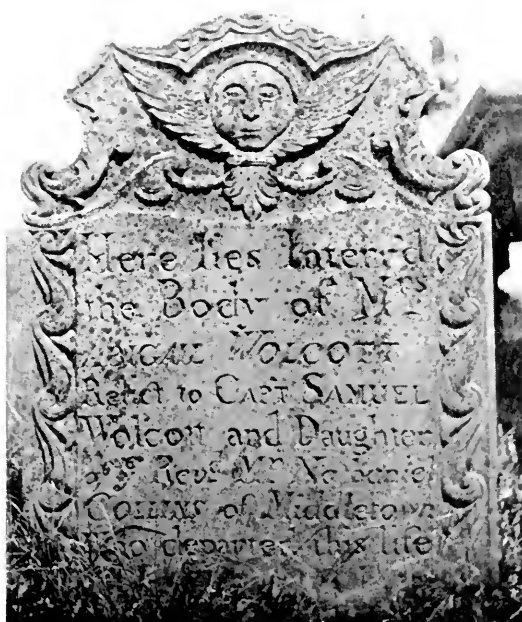 Here lies Interr'd
the Body of Mrs
ABIGAIL WOLCOTT
Relict to CAPT SAMUEL
Wolcott and Daughter
of ye Revd Mr Nathaniel
COLLINS of Middletown
Who departed this life